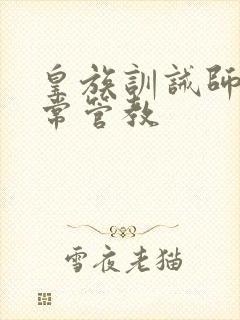 皇族訓誡師
常管教
雪夜老猫